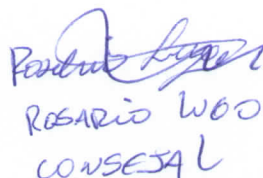 ROSARIO LUGO
CONSEJAL